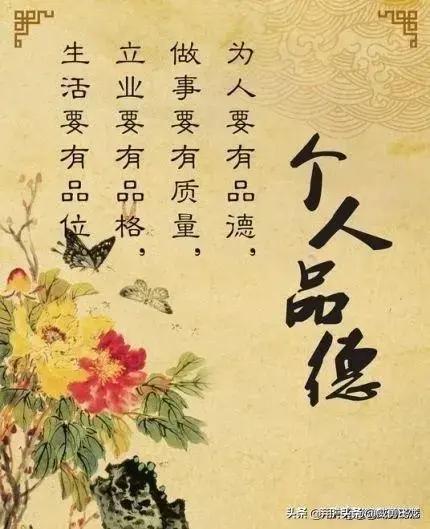 个人品德
为人要有品德，
做事要有质量，
立业要有品格，
生活要有品位